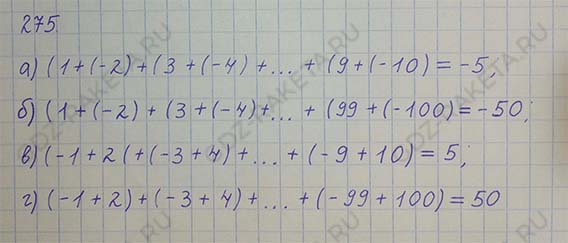 275.
а) (1+(-2)+(3+(-4)+...+(9+(-10)=-5;
б) (1+(-2)+(3+(-4)+...+(99+(-100)=-50;
в) (-1+2(+(-3+4)+...+(-9+10)=5;
г) (-1+2)+(-3+4)+...+(-99+100)=50